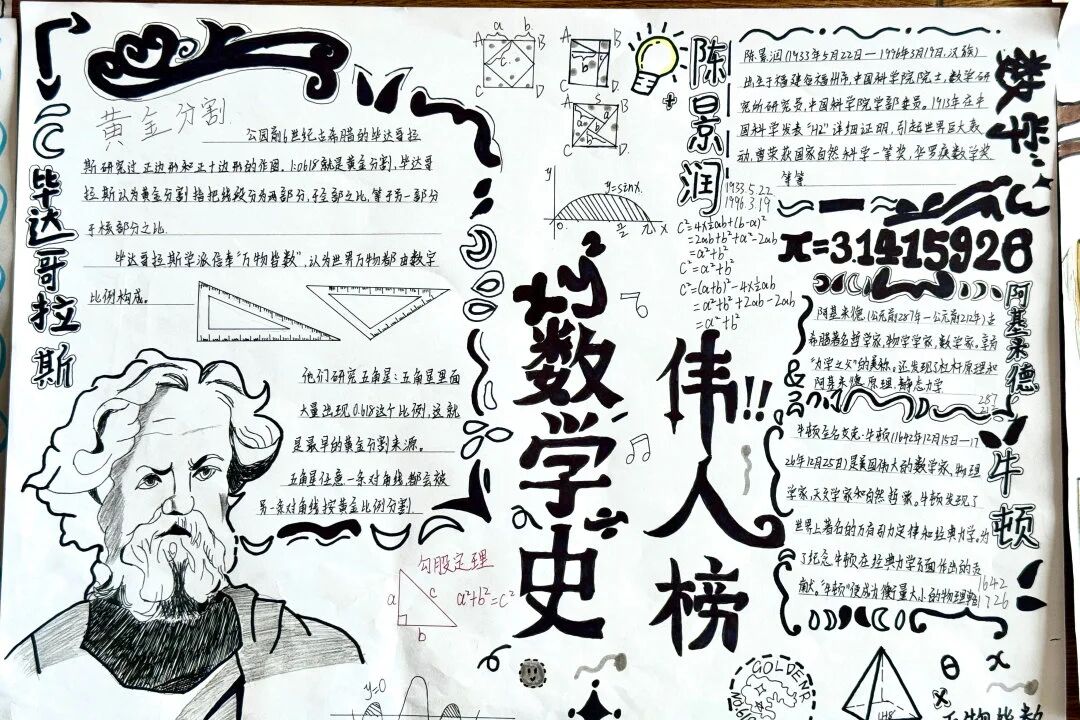 黄金分割
公园前6世纪古希腊的毕达哥拉
斯研究过正边形和正十边形的作图,1:0.618就是黄金分割,毕达哥
拉斯认为黄金分割指把线段分为两部分,
于核部分之比.
毕达哥拉斯学派信奉"万物皆数",认为世界万物都由数字
比例构成。
毕达哥拉斯
他们研究五角星:五角星里面
大量出现0.618这个比例,这就
是最早的黄金分割来源。
五角星任意一条对角线,都会被
另一条对角线按黄金比例分割
勾股定理
a c b
a²+b²=c²
y=0
A a b B
c
C D
A B
b
C D.
A B
C D.
y
y=sinx.
0 π/2 π x
c²=4×½ab+(b-a)²
=2ab+b²+a²-2ab
=a²+b²
c²=a²+b²
c²=(a+b)²-4×½ab
=a²+b²+2ab-2ab
=a²+b²
数学史
伟人榜
!!
陈景润
1933.5.22
1996.3.19
陈景润(1933年5月22日—1996年3月19日,汉族)
出生于福建省福州市,中国科学院院士,数学研
究所研究员,中国科学院学部委员。1973年在中
国科学发表"H2"详细证明,引起世界巨大轰
动,曾荣获国家自然科学一等奖,华罗庚数学奖
等等
π=31415926
阿基米德
阿基米德,(公元前287年—公元前212年)古
希腊著名哲学家,物理学家,数学家,享有
"力学之父"的美称。还发现了杠杆原理和
阿基米德原理,静态力学
287
&
牛顿
牛顿全名艾克·牛顿(1642年12月15日—17
26年12月25日)是英国伟大的数学家,物理
学家,天文学家和自然哲学。牛顿发现了
世界上著名的万有引力定律和经典力学。为
了纪念牛顿在经典力学方面作出的贡
献。"牛顿"便成为衡量大小的物理单
1642
1726
GOLDEN
θ
x